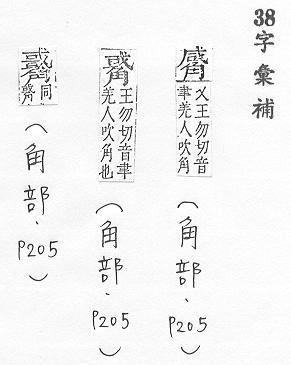 38字彙補
王勿切音
聿羌人吹角
（角部．P205）
王勿切音聿
羌人吹角也
（角部．P205）
同
（角部．P205）